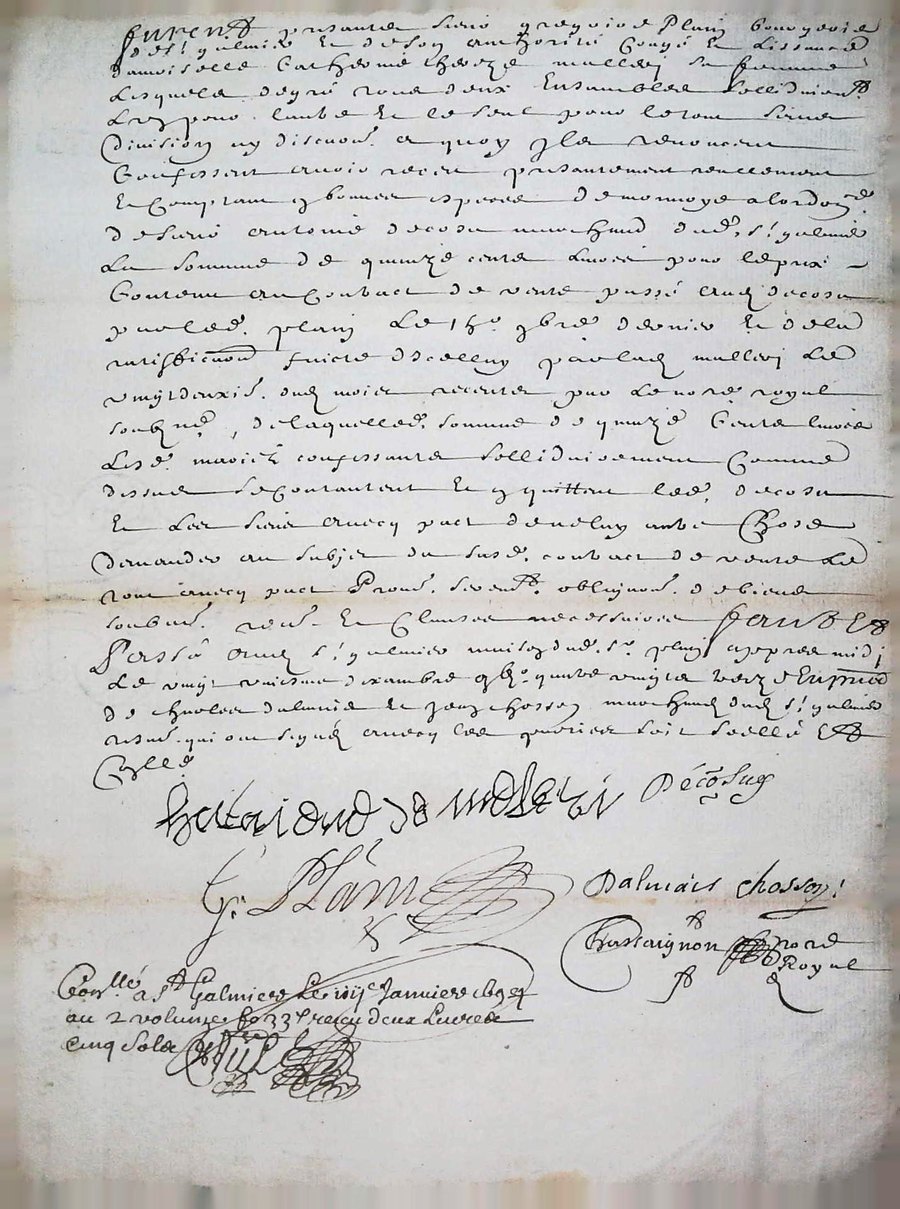 furent presants sieur gregoire Plain bourgeois
de st galmier et de son authorité Congé et Lissance
damoiselle Catherine thereze mallery sa femme
Lesquels de gré tous deux Ensembles sollidairemt
L'ung pour l'autre et le seul pour le tout sans
division ny discuon a quoy jls renoncent
Confessent avoir receu presantement reellement
Et Comptant en bonnes espeses de monnoye a lordoce
de sieur antoine decosu marchand dud. st galmier
La somme de quinze cents Livres pour le prix
Contenu au Contract de vente passé aud decosu
par led. plain Le 15e 9bre dernier Et de la
rattiffication faicte dicelluy par lad mallery Le
vingt deuxie. dud mois receues par Le nore royal
soubzne, de laquelle d. somme de quinze Cents livres
Lesd. mariez confessants sollidairement Comme
dissus se contantent Et en quittent led. decosu
Et Les siens avecq pact de ne luy autre Chose
demander au subject du susd. contract de vente Le
tout avecq pact Prom. serent. obligaon. de biens
soubm. renon. Et Clauses necessaires faict Et
Passé aud st galmier maison dud. sr plain appres midj
Le vingt uniesme dexambre gbc quatre vingts treze En pnce
de charles dalmais Et jean chosson marchands dud st galmier
tesm. qui ont signés avecq les parties soit scellé Et
Coṇllé
Decosu
G. Plain
Dalmais chosson
Chassaignon nore
Royal
Conllé a St Galmier Le iiije Janvier 1694
au 2 volume fo 33 receu deux Livres
cinq sols